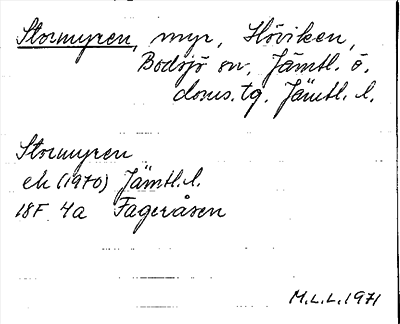 Stormyren, myr, Höviken,
Bodsjö sn, Jämtl. ö.
doms. tg. Jämtl. l.
Stormyren
ek (1970) Jämtl. l.
18F 4a Fageråsen
M.L.L. 1971